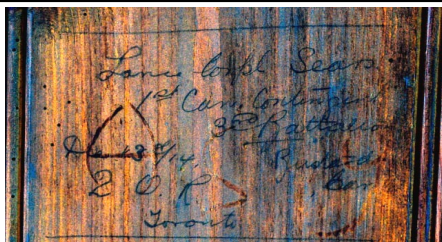 Lance Corpl Sears
1st Can. Contingent
3rd Battalion
Bustard
2 O R
Toronto